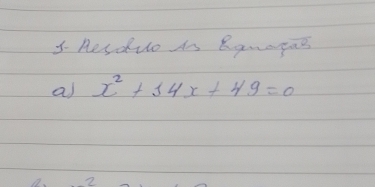 1- Resolva as Equação
a) x² + 14x + 49 = 0